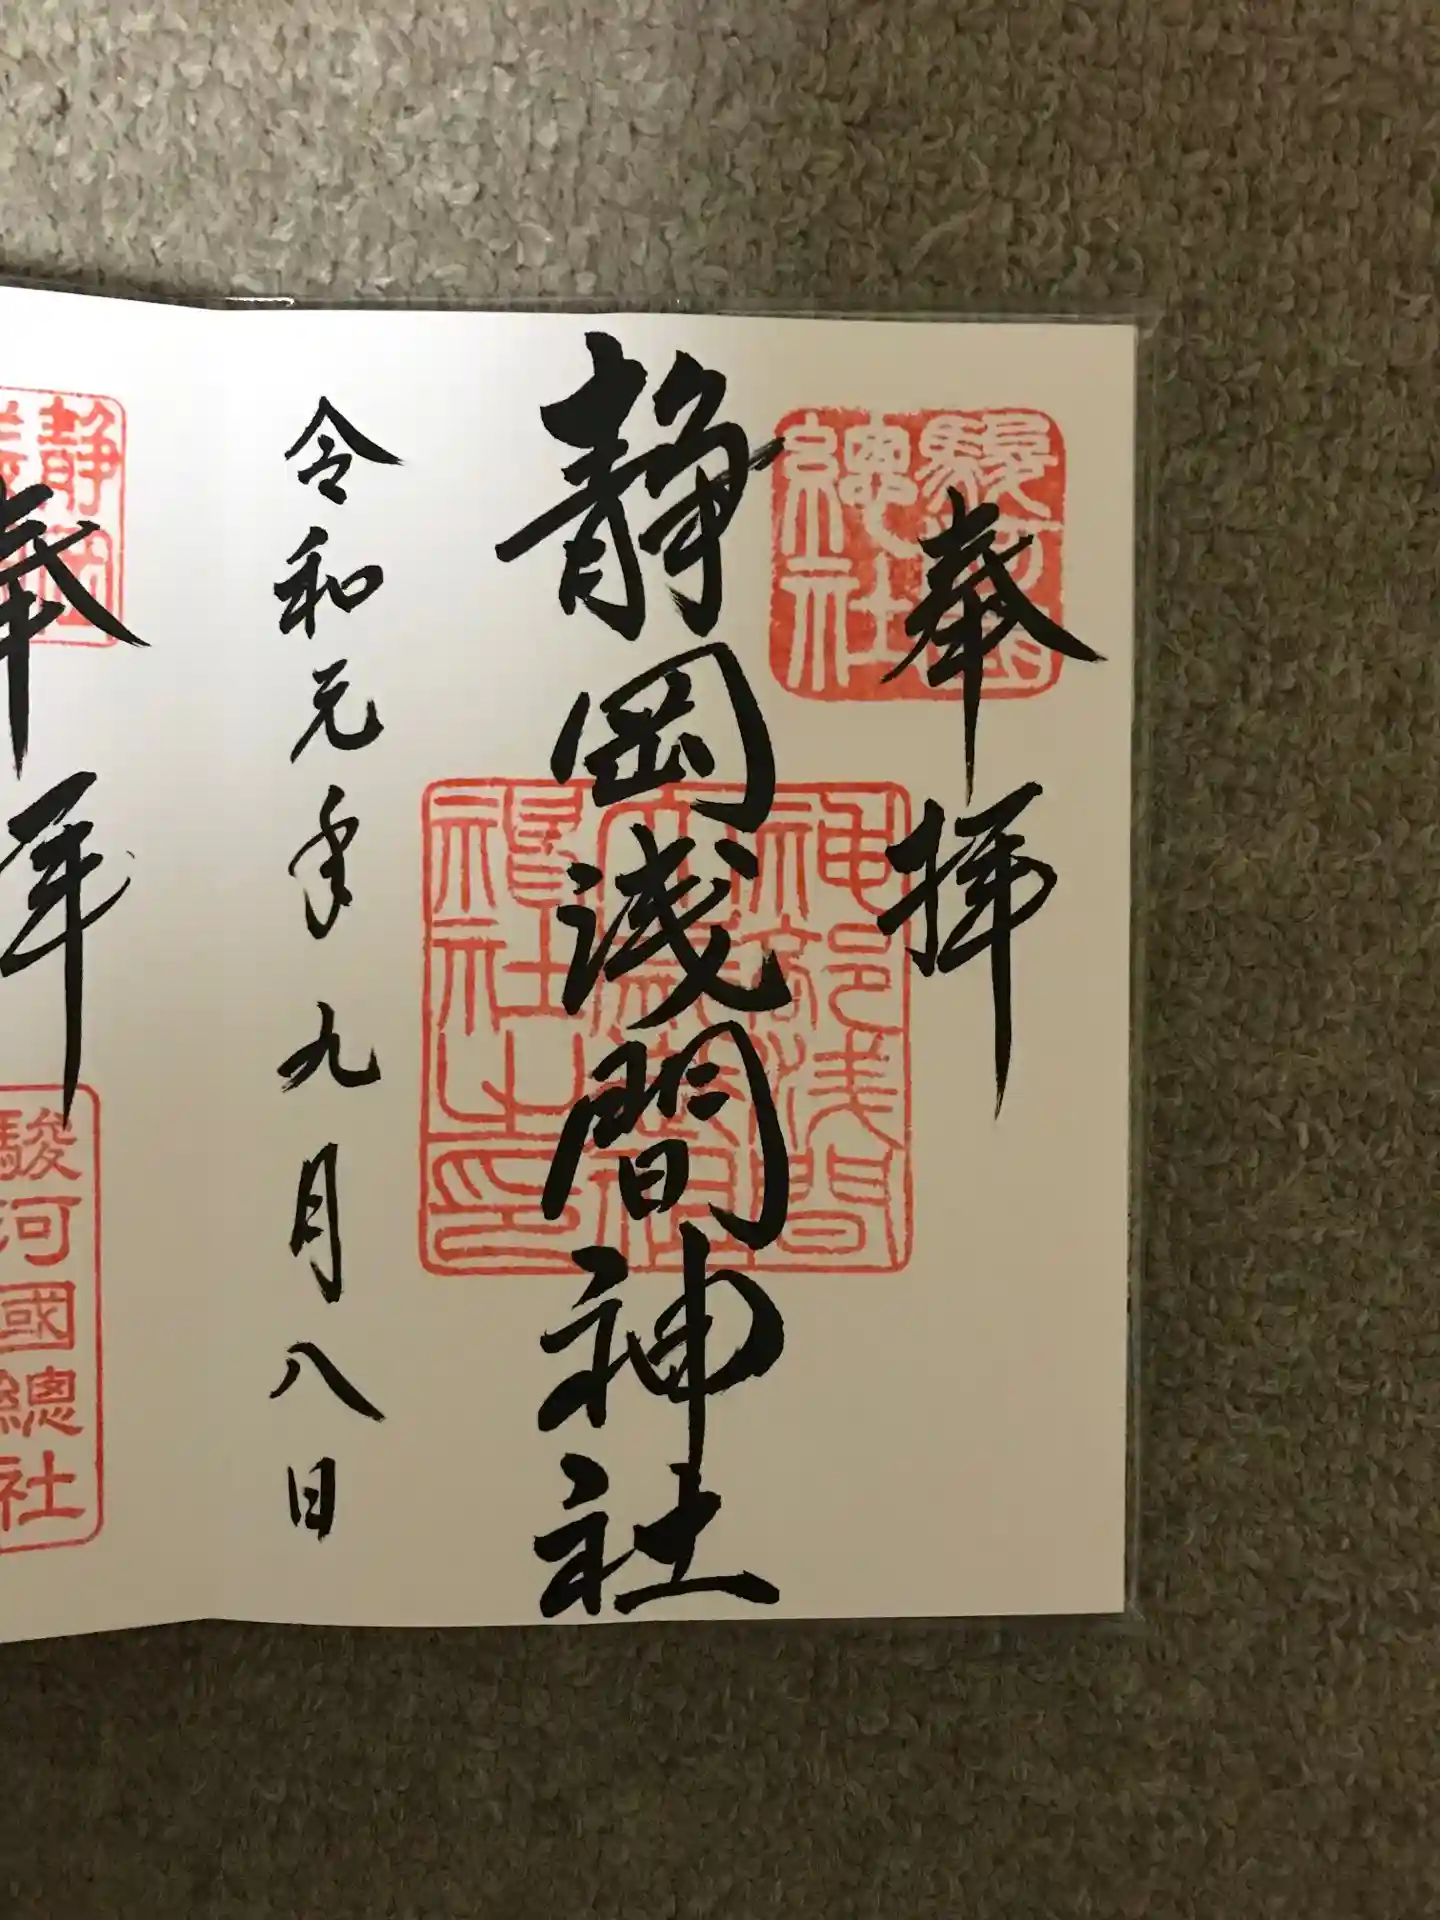 奉拝
駿河國
總社
静岡浅間神社
神部浅間
大歳御祖
神社之印
令和元年九月八日
静岡
奉拝
駿河國總社